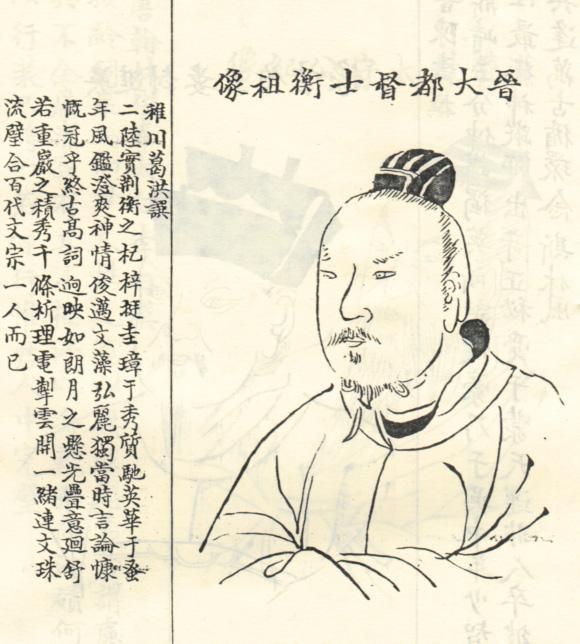 晉大都督士衡祖像
稚川葛洪譔
二陸實荊衡之杞梓挺圭璋于秀質馳英華于蚤
年風鑑澄爽神情俊邁文藻弘麗獨當時言論慷
慨冠乎終古高詞迥映如朗月之懸光疊意廻舒
若重巖之積秀千條析理電掣雲開一緒連文珠
流璧合百代文宗一人而已